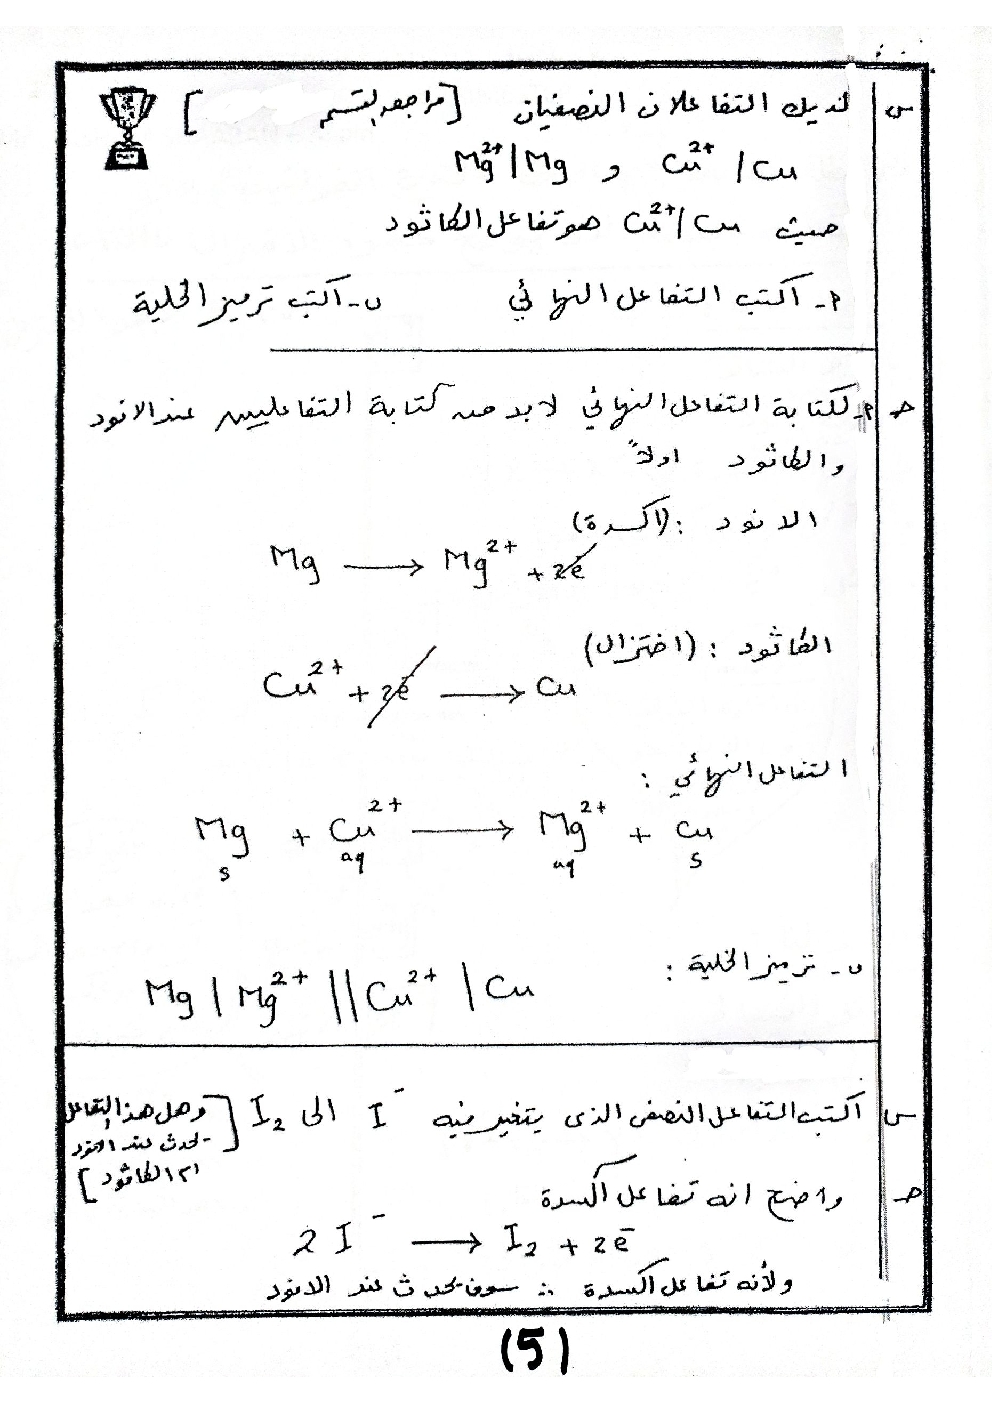 س لديك التفاعلان النصفيان [مراجعة القسم]
Cu²⁺/Cu و Mg²⁺/Mg
حيث Cu²⁺/Cu هو تفاعل الكاثود
م- اكتب التفاعل النهائي ں- اكتب ترميز الخلية
ج م- لكتابة التفاعل النهائي لا بد من كتابة التفاعليين عند الانود
والكاثود اولاً
الانود : (اكسدة)
Mg → Mg²⁺ + 2e⁻
الكاثود : (اختزال)
Cu²⁺ + 2e⁻ → Cu
التفاعل النهائي :
Mg s + Cu²⁺ aq → Mg²⁺ aq + Cu s
ں- ترميز الخلية :
Mg | Mg²⁺ || Cu²⁺ | Cu
س اكتب التفاعل النصفي الذى يتغير فيه I⁻ الى I₂ [وهل هذا التفاعل
يحدث عند الانود
ام الكاثود]
ج واضح انه تفاعل اكسدة
2I⁻ → I₂ + 2e⁻
ولأنه تفاعل اكسدة ∴ سوف يحدث عند الانود
(5)